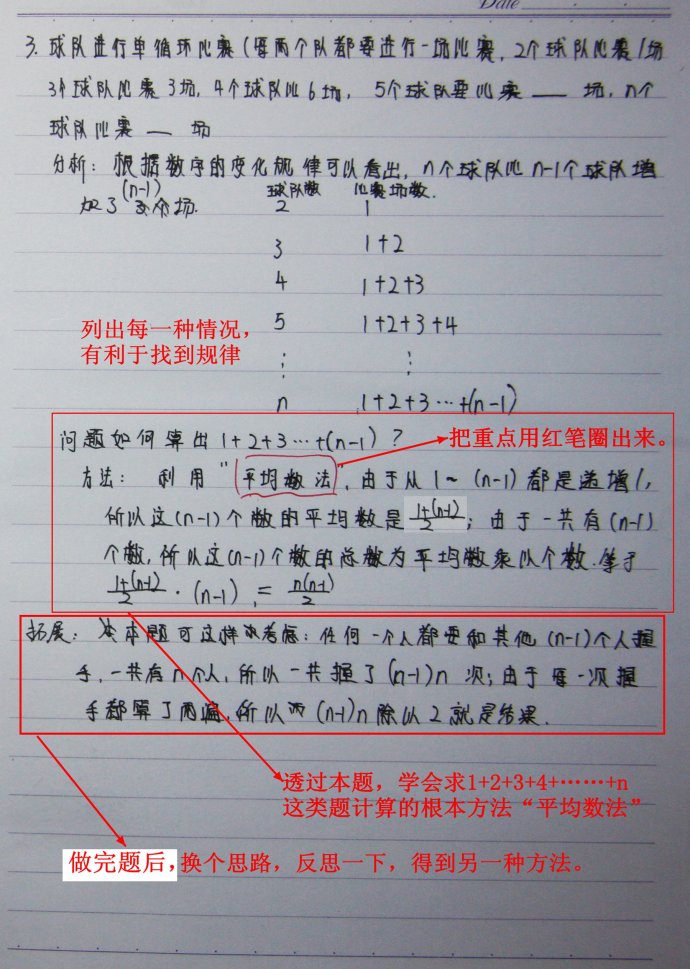 Date
3. 球队进行单循环比赛(每两个队都要进行一场比赛, 2个球队比赛1场
3个球队比赛3场, 4个球队比6场, 5个球队要比赛 ___ 场, n个
球队比赛 ___ 场
分析: 根据数字的变化规律可以看出, n个球队比 n-1个球队增
加了 (n-1) 场.
球队数 比赛场数.
2 1
3 1+2
4 1+2+3
5 1+2+3+4
⋮ ⋮
n 1+2+3…+(n-1)
列出每一种情况,
有利于找到规律
问题如何算出 1+2+3…+(n-1) ?
把重点用红笔圈出来。
方法: 利用"平均数法", 由于从 1~(n-1) 都是递增1,
所以这(n-1)个数的平均数是 \frac{1+(n-1)}{2}; 由于一共有(n-1)
个数, 所以这(n-1)个数的总数为平均数乘以个数. 等于
\frac{1+(n-1)}{2}·(n-1) = \frac{n(n-1)}{2}
拓展: 本题可这样考虑: 任何一个人都要和其他(n-1)个人握
手, 一共有n个人, 所以一共握了(n-1)n 次; 由于每一次握
手都算了两遍, 所以(n-1)n 除以2就是结果.
透过本题，学会求1+2+3+4+……+n
这类题计算的根本方法“平均数法”
做完题后，换个思路，反思一下，得到另一种方法。